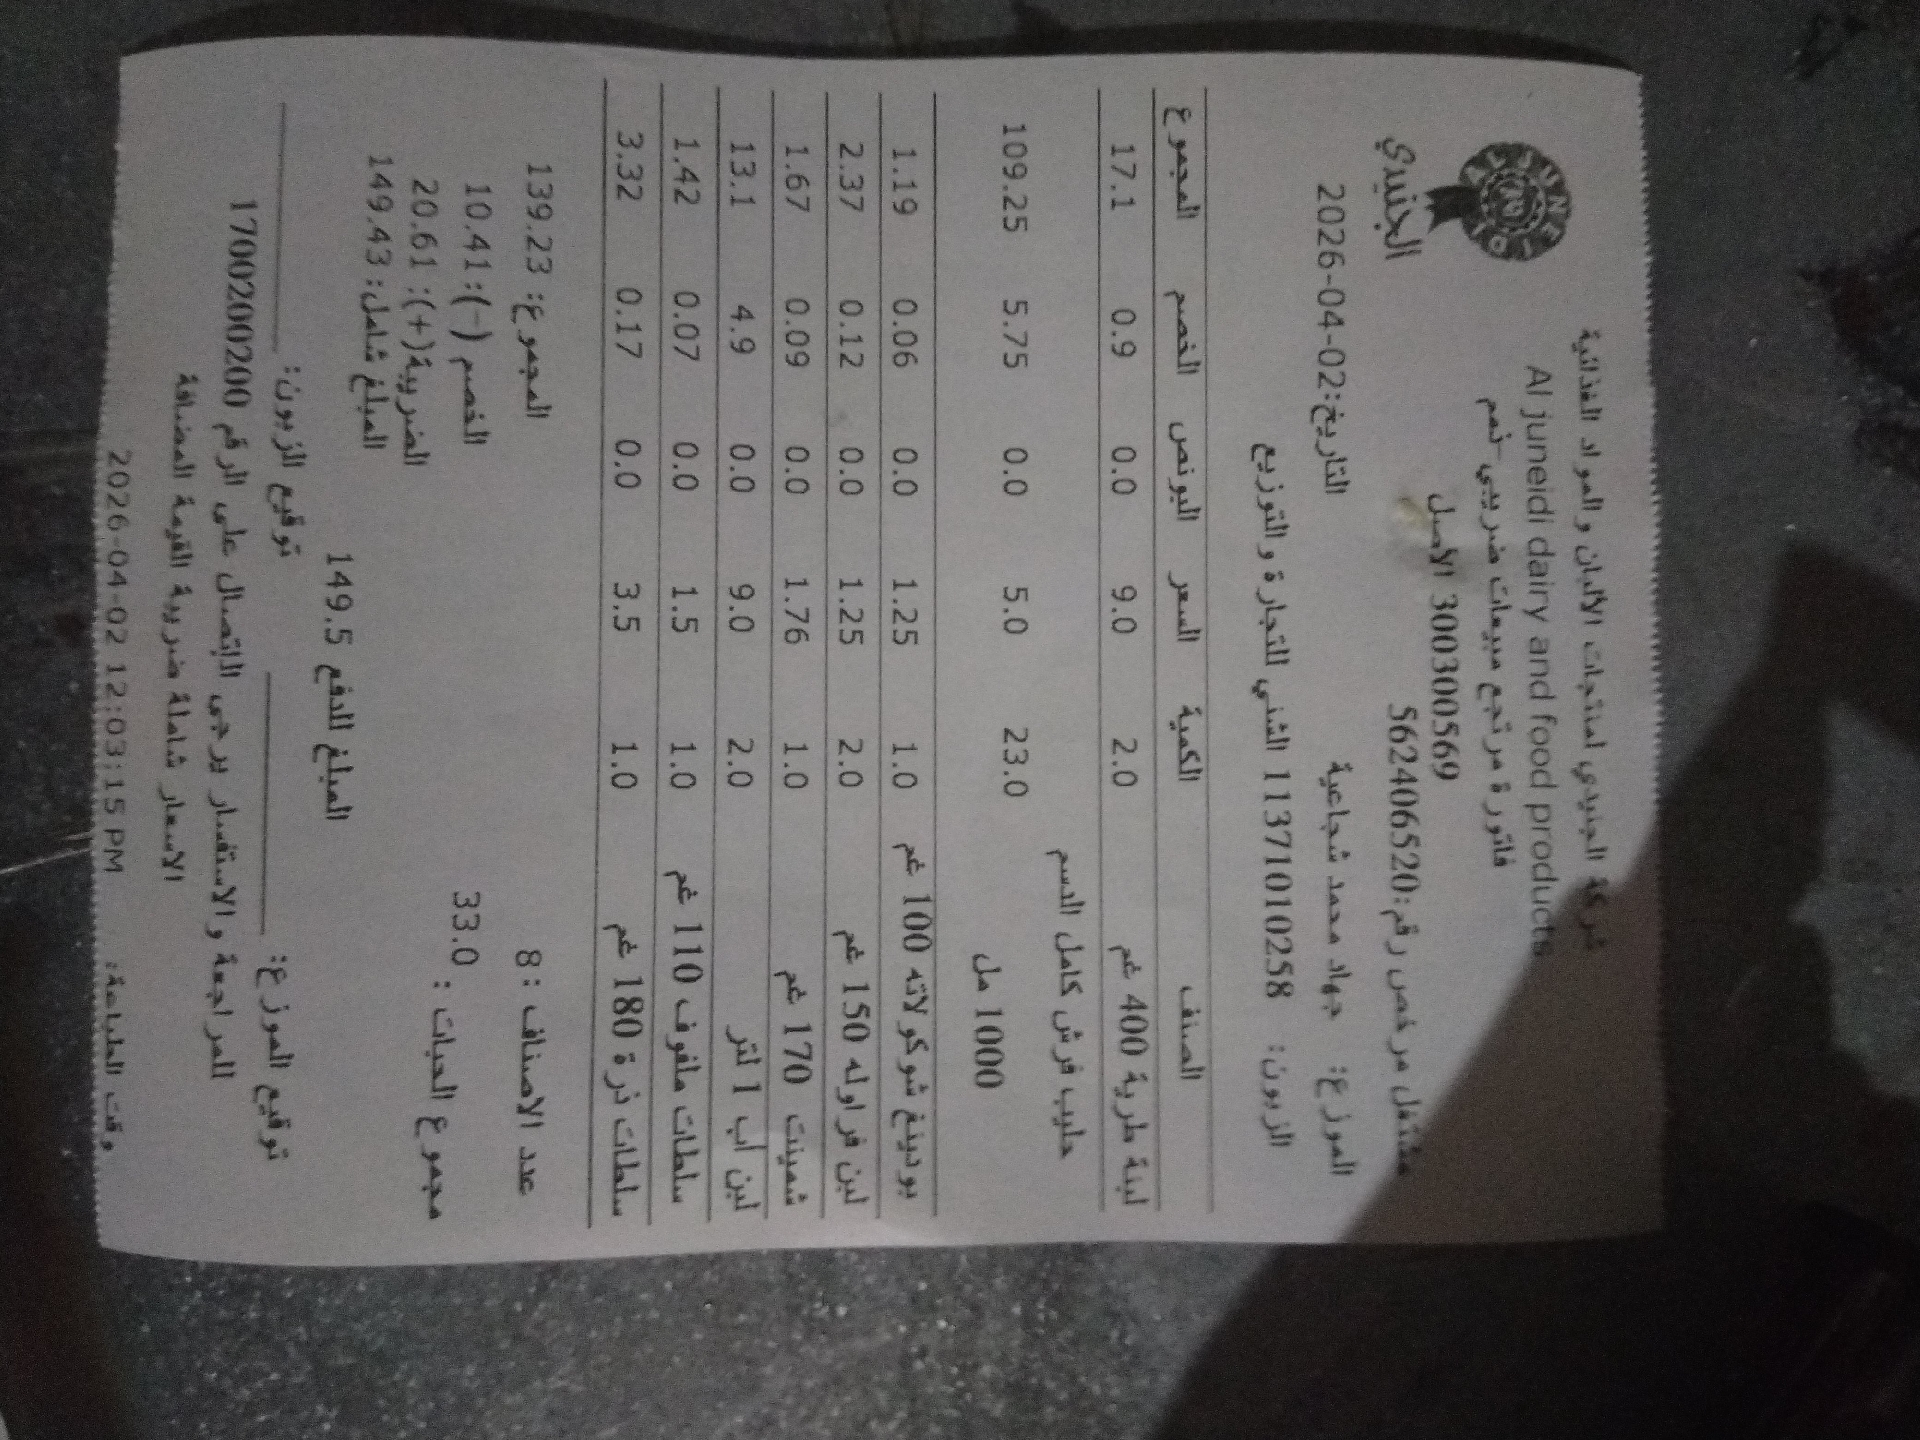 شركة الجنيدي لمنتجات الألبان والمواد الغذائية
Al juneidi dairy and food products
فاتورة مرتجع مبيعات ضريبي نهم
300300569 الأصل
الجنيدي
مشتغل مرخص رقم:562406520
الموزع: جهاد محمد شجاعية التاريخ:2026-04-02
الزبون: 1137101010258 الشني للتجارة والتوزيع
الصنف الكمية السعر البونص الخصم المجموع
لبنة طرية 400 غم 2.0 9.0 0.0 0.9 17.1
حليب فرش كامل الدسم
1000 مل 23.0 5.0 0.0 5.75 109.25
بودينغ شوكولاته 100 غم 1.0 1.25 0.0 0.06 1.19
لبن فراوله 150 غم 2.0 1.25 0.0 0.12 2.37
شمينت 170 غم 1.0 1.76 0.0 0.09 1.67
لبن أب 1 لتر 2.0 9.0 0.0 4.9 13.1
سلطات ملفوف 110 غم 1.0 1.5 0.0 0.07 1.42
سلطات ذرة 180 غم 1.0 3.5 0.0 0.17 3.32
عدد الاصناف : 8 المجموع: 139.23
مجموع الحبات : 33.0 الخصم (-): 10.41
الضريبة(+): 20.61
المبلغ شامل: 149.43
المبلغ للدفع 149.5
توقيع الموزع: توقيع الزبون:
للمراجعة والاستفسار يرجى الاتصال على الرقم 1700200200
الاسعار شاملة ضريبة القيمة المضافة
وقت الطباعة: 2026-04-02 12:03:15 PM